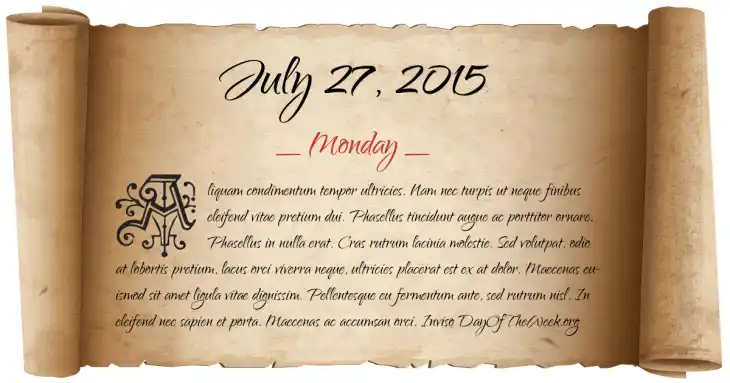 July 27, 2015
__ Monday __
Aliquam condimentum tempor ultricies. Nam nec turpis ut neque finibus
eleifend vitae pretium dui. Phasellus tincidunt augue ac porttitor ornare.
Phasellus in nulla erat. Cras rutrum lacinia molestie. Sed volutpat, odio
at lobortis pretium, lacus orci viverra neque, ultricies placerat est ex at dolor. Maecenas eu-
ismod sit amet ligula vitae dignissim. Pellentesque eu fermentum ante, sed rutrum nisl. In
eleifend nec sapien et porta. Maecenas ac accumsan orci. Inviso DayOfTheWeek.org